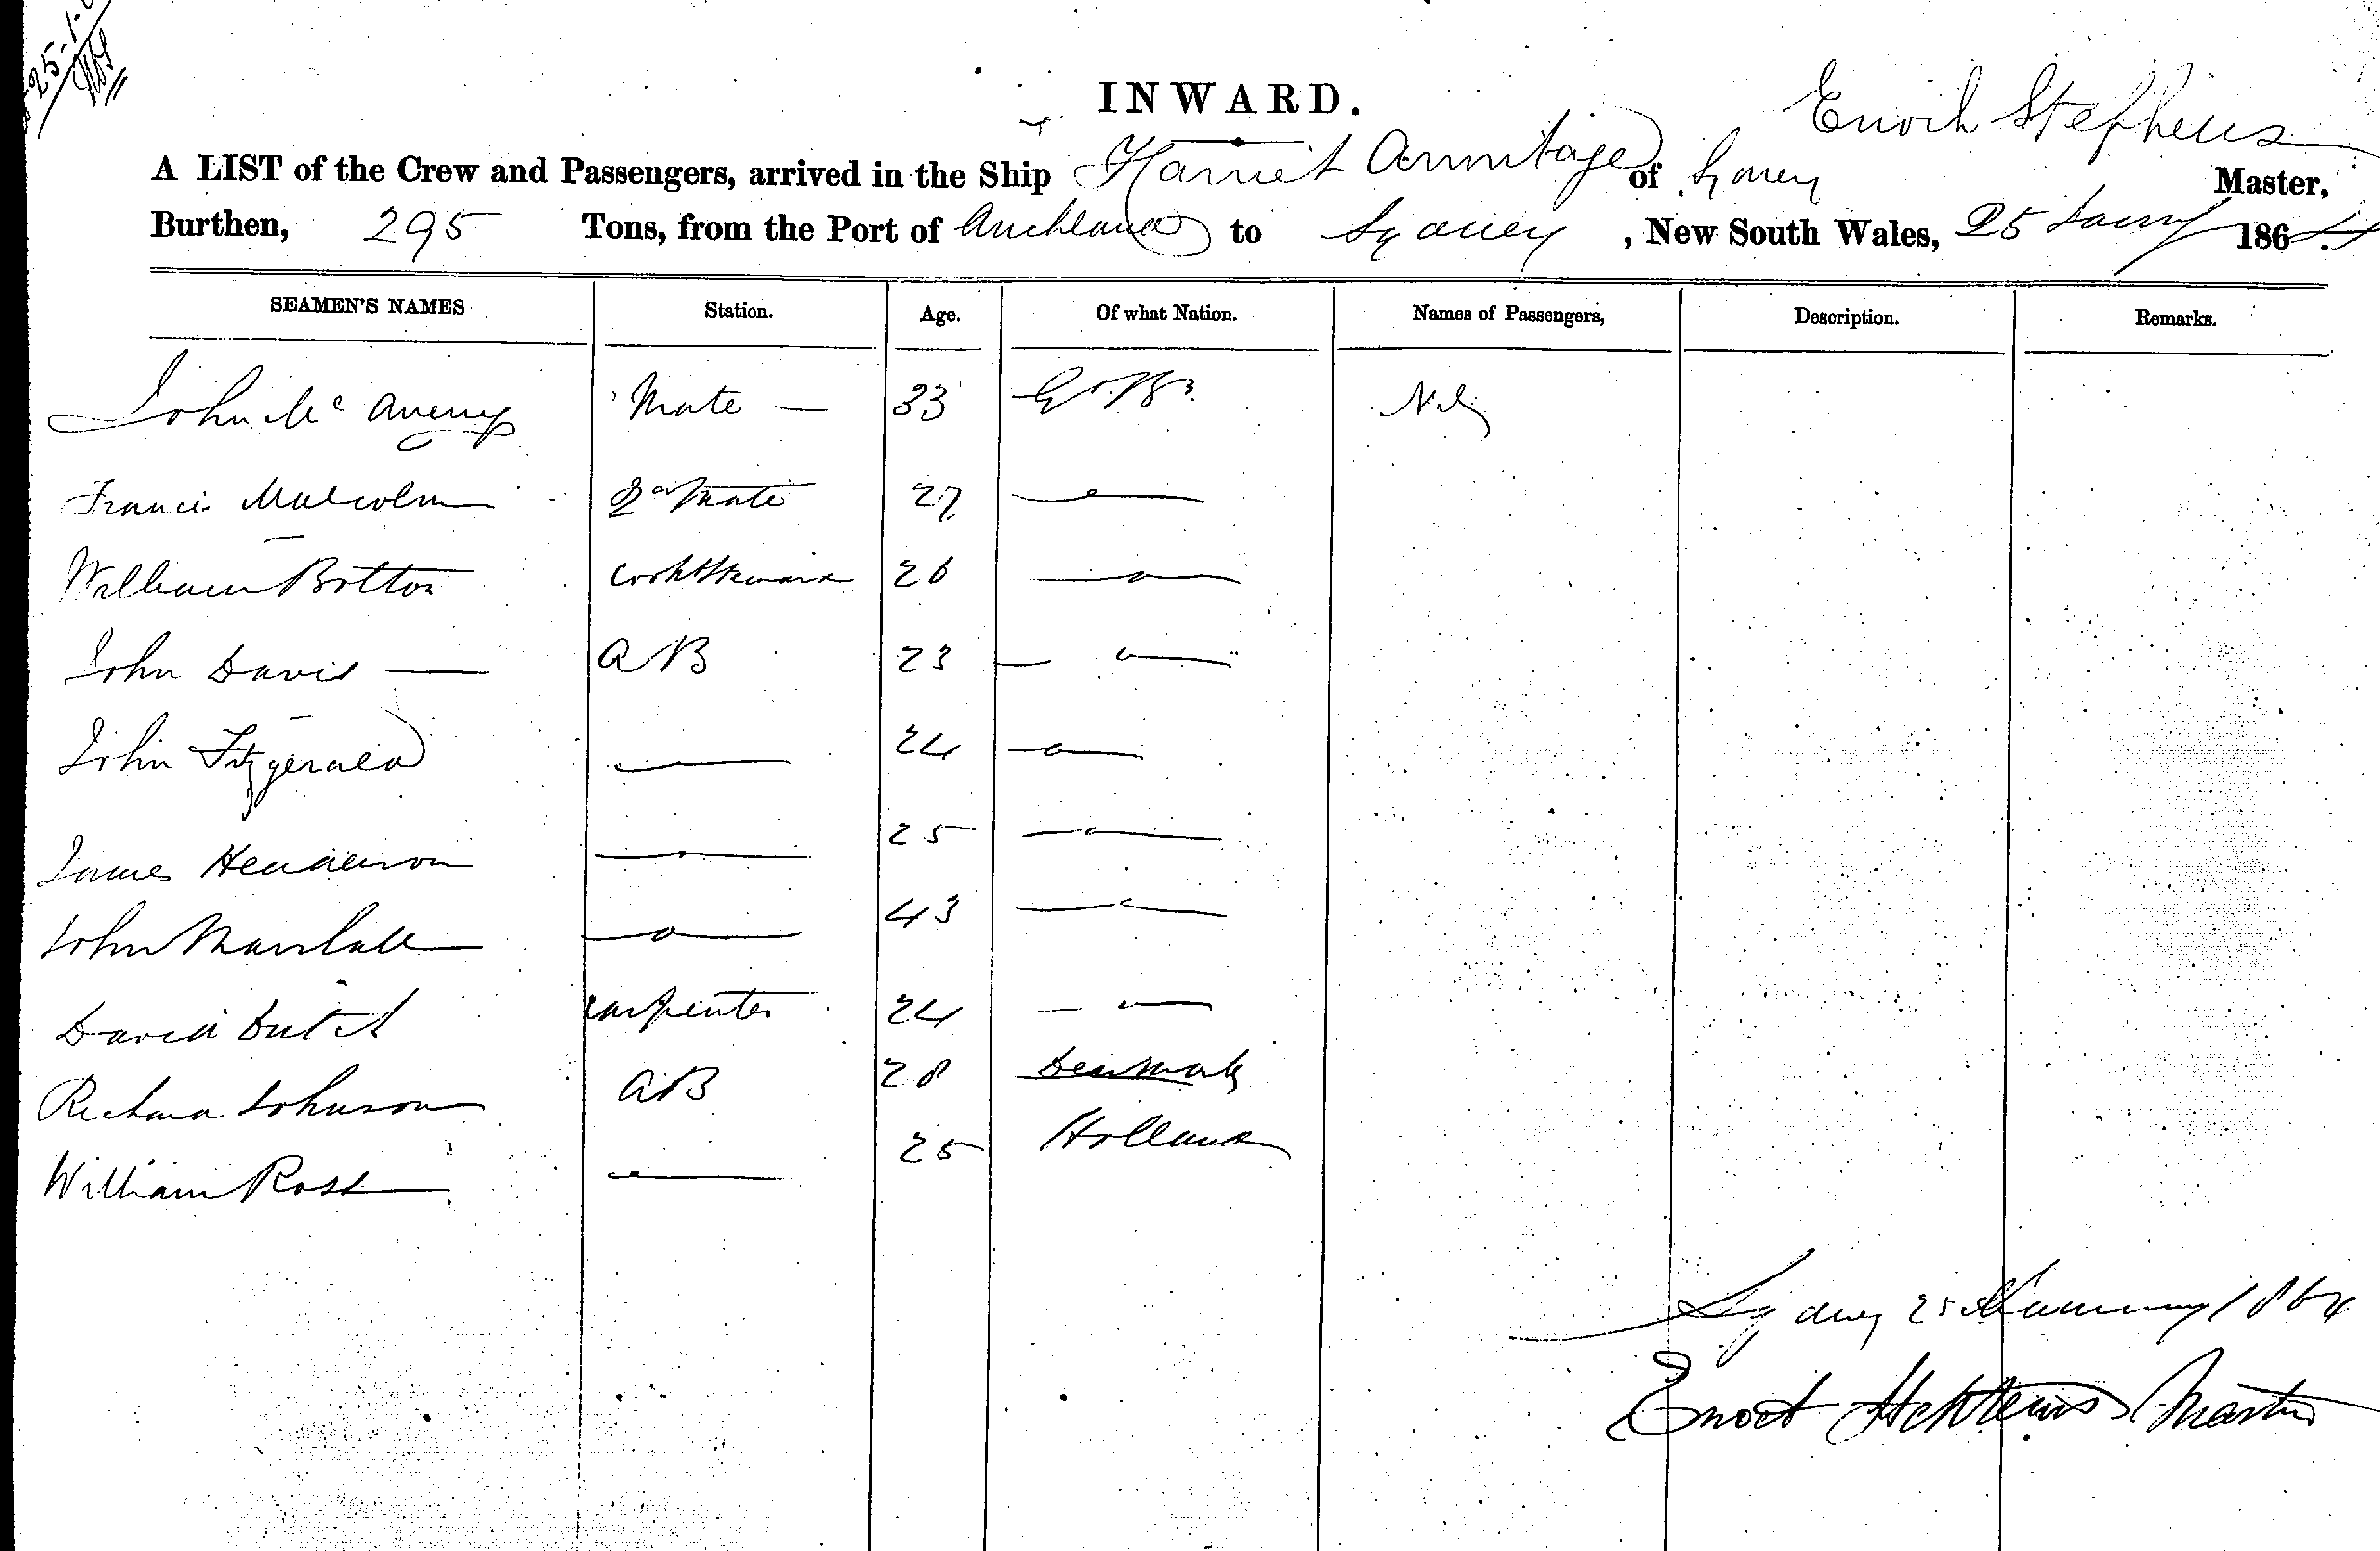 25-1-
INWARD.
Enoch Stephens
A LIST of the Crew and Passengers, arrived in the Ship Harriet Armitage of Sydney Master,
Burthen, 295 Tons, from the Port of Auckland to Sydney, New South Wales, 25 Jany 1864
SEAMEN'S NAMES Station. Age. Of what Nation. Names of Passengers, Description. Remarks.
John Mc Mate — 33 Gt. Br. Nil
Francis Malcolm 2d Mate 27 —"—
William Botton Cook & Steward 26 —"—
John Davis — AB 23 —"—
John Fitzgerald —"— 24 —"—
James Henderson —"— 25 —"—
John Marshall —"— 43 —"—
David Carpenter 24 —"—
Richard Johnson AB 28 Denmark
William Ross —"— 25 Holland
Sydney 25 January 1864
Enoch Stephens Master